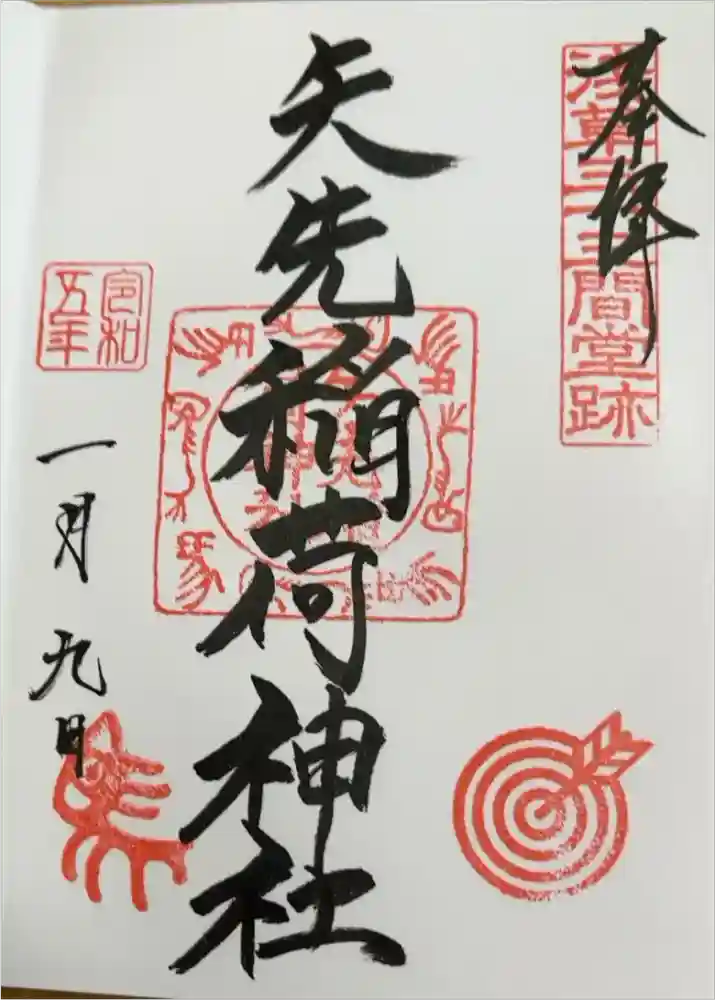 奉拝
浅草三十三間堂跡
矢先稲荷神社
令和
五年
一月九日